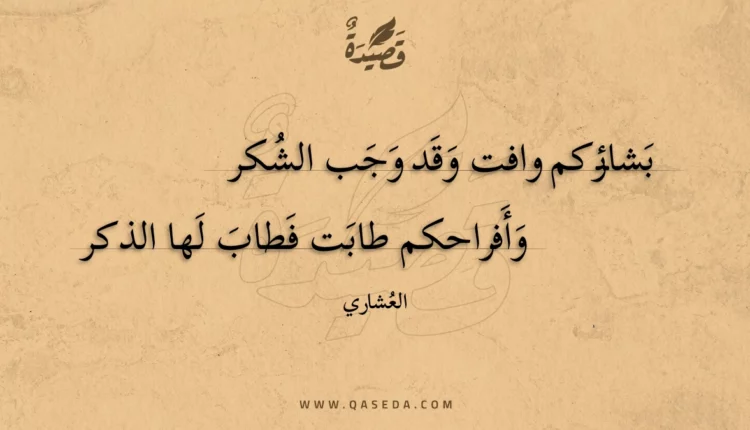 قَصِيدَةٌ
بَشائركم وافت وَقَد وَجَب الشُكر
وَأَفراحكم طابَت فَطابَ لَها الذكر
العُشاري
WWW.QASEDA.COM